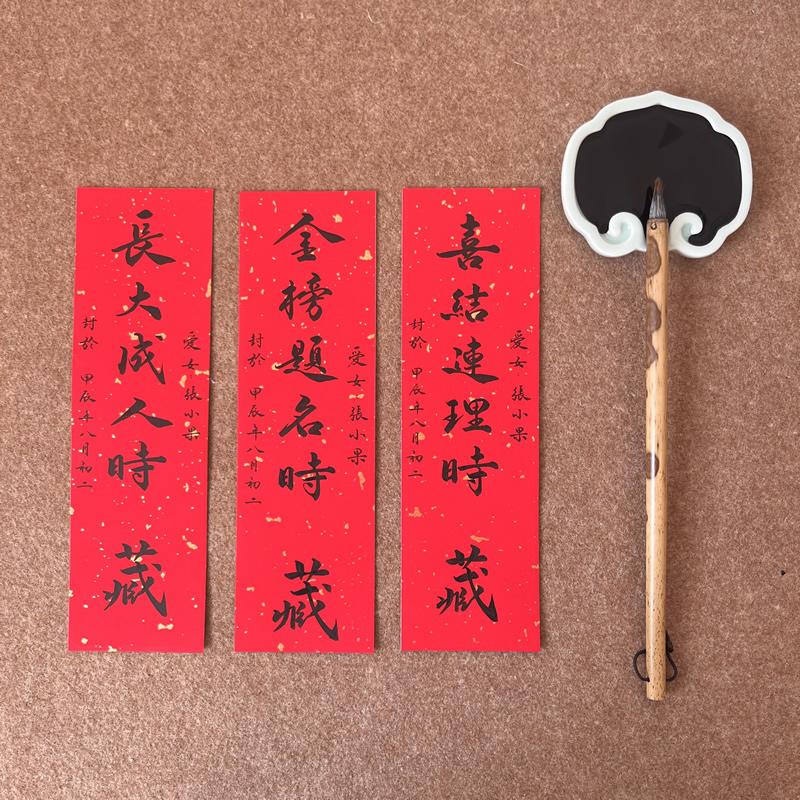 長大成人時 藏
愛女 張小果
封於 甲辰年八月初二
金榜題名時 藏
愛女 張小果
封於 甲辰年八月初二
喜結連理時 藏
愛女 張小果
封於 甲辰年八月初二